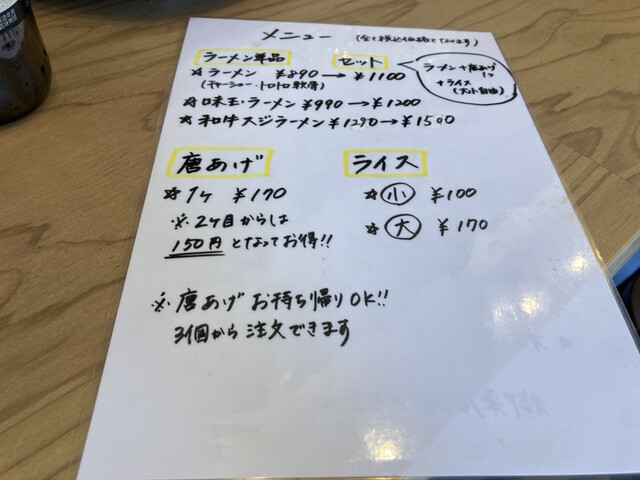 メニュー (全て税込価格となってます)
ラーメン単品 セット
☆ ラーメン ¥890 → ¥1100
(チャーシュー・トロトロ軟骨)
ラーメン+唐あげ
1ヶ
+ライス
(大小自由)
☆ 味王・ラーメン ¥990 → ¥1200
☆ 和牛スジラーメン ¥1290 → ¥1500
唐あげ ライス
☆ 1ヶ ¥170
☆ 小 ¥100
※ 2ヶ目からは
☆ 大 ¥170
150円 となってお得!!
※ 唐あげ お持ち帰りOK!!
3個から注文できます